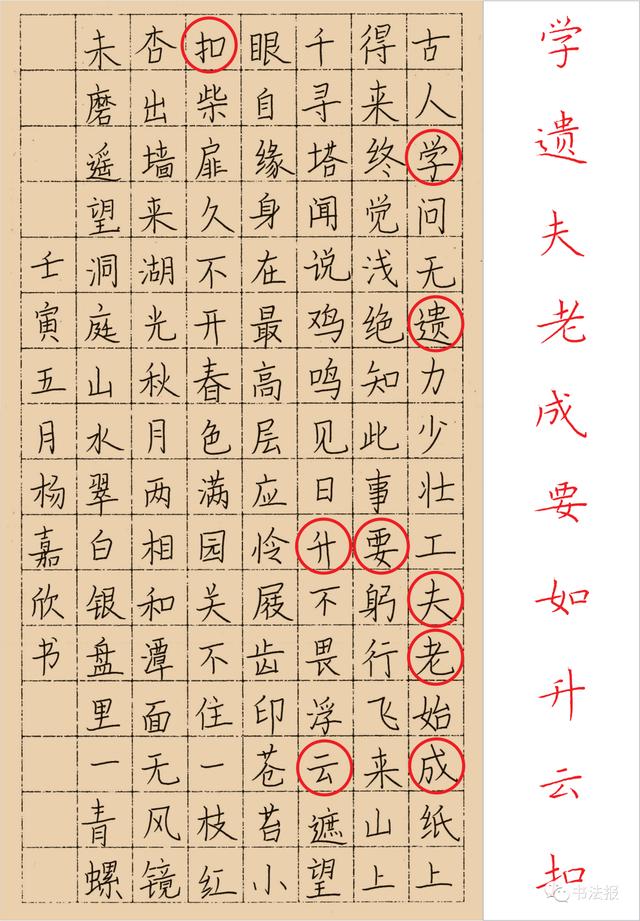 古人学问无遗力少壮工夫老始成纸上
得来终觉浅绝知此事要躬行飞来山上
千寻塔闻说鸡鸣见日升不畏浮云遮望
眼自缘身在最高层应怜屐齿印苍苔小
扣柴扉久不开春色满园关不住一枝红
杏出墙来湖光秋月两相和潭面无风镜
未磨遥望洞庭山水翠白银盘里一青螺
壬寅五月杨嘉欣书
学遗夫老成要如升云扣
书法报